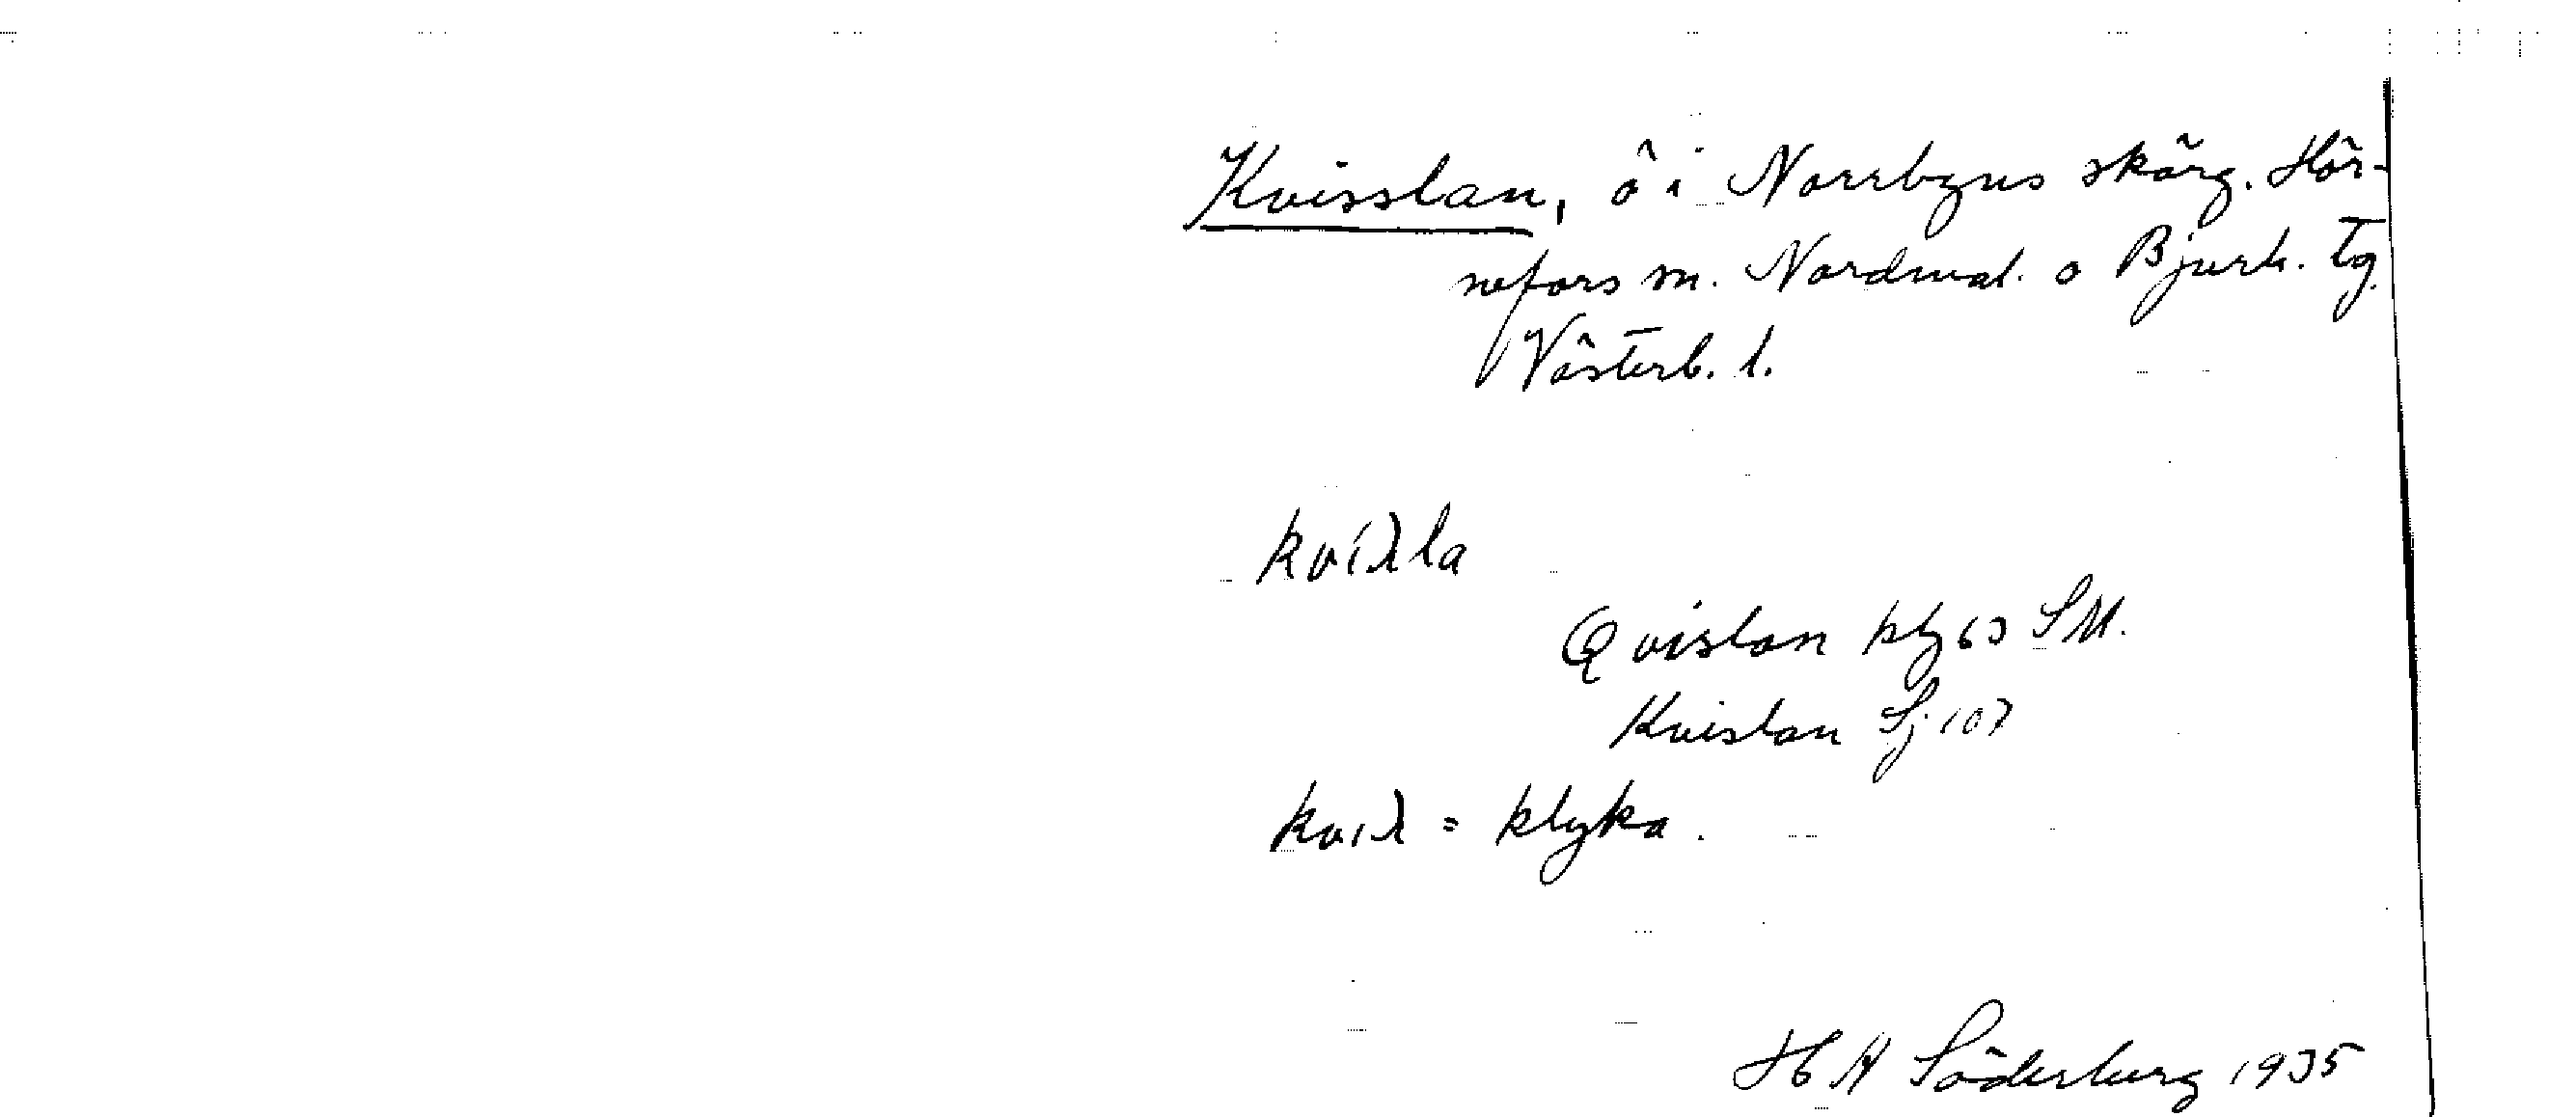 Kvisslan, ö i Norrbyns skärg. Hör-
nefors sn. Nordmal. o Bjurh. tg.
Västerb. l.
kviλla
Qvislan kbg 63 SM.
Kvislan Sj 107
kviλ = klyka.
H A Söderberg 1935